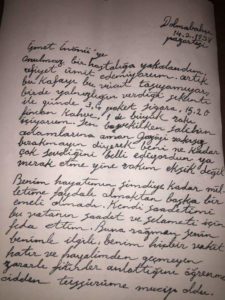 Dolmabahçe
14.2.1938
pazartesi
İsmet İnönü'ye
Onulmaz bir hastalığa yakalandım
afiyet ümit edemiyorum. artık
bu kafayı bu vücut taşıyamıyor,
birde yalnızlığın verdiği sıkıntı
ile günde 3.4 paket sigara, 15.20
fincan kahve, 1 de büyük rakı
içiyorum. Sen başvekilken Salihin
adamlarına aman Gaziyi yalnız
bırakmayın diyerek beni ne kadar
çok sevdiğini belli ediyordun ya
merak etme yine rakım eksik değil
Benim hayatımın şimdiye kadar mil-
letime faydalı olmaktan başka bir
emeli olmadı. Kendi saadetimi
bu vatanın saadet ve selameti için
feda ettim. Buna rağmen senin
benimle ilgili, benim hiçbir vakit
hatır ve hayalimden geçmeyen
zararlı fikirler anlattığını öğrenmem
cidden teessürüme mucip oldu.